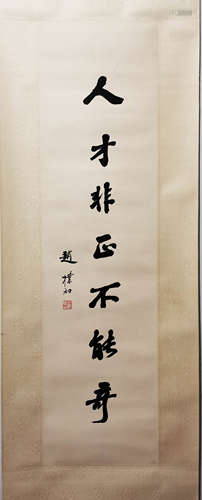 人才非正不能奇
趙樸初